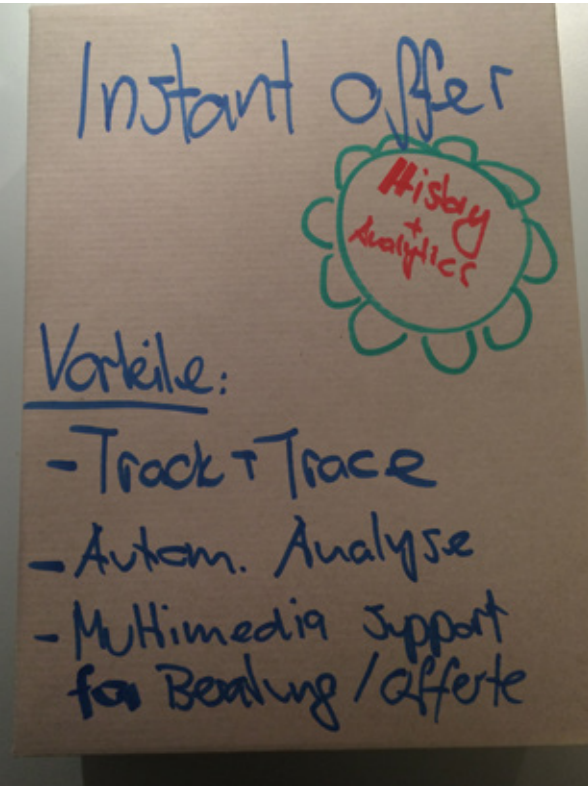 Instant offer
History
+
Analytics
Vorteile:
- Track + Trace
- Autom. Analyse
- Multimedia support
for Beratung / Offerte